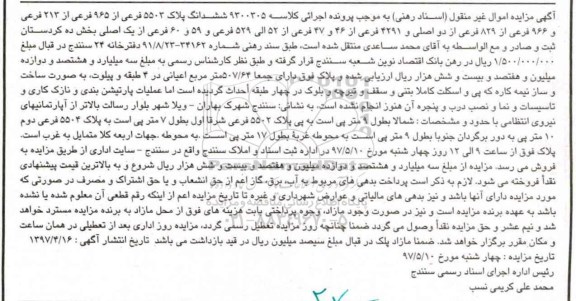 آگهی مزایده اموال غیر منقول (اسناد رهنی) به موجب پرونده اجرائی کلاسه ۹۳۰۰۳۰۵ ششدانگ پلاک ۵۵۰۳ فرعی از ۹۶۵ فرعی از ۲۱۳ فرعی
و ۹۶۶ فرعی از ۸۲۹ فرعی از دو اصلی و ۴۲۹۱ فرعی از ۴۶ و ۴۷ فرعی از ۵۲ الی ۵۲۹ فرعی و ۵۹ و ۶۰ فرعی از یک اصلی بخش ده کردستان
ثبت و صادر و مع الواسطه به آقای محمد ساعدی منتقل شده است. طبق سند رهنی شماره ۳۴۱۶۲-۹۱/۸/۲۳ دفترخانه ۲۴ سنندج در قبال مبلغ
۱/۵۰۰/۰۰۰/۰۰۰ ریال در رهن بانک اقتصاد نوین شعبه سنندج قرار گرفته و طبق نظر کارشناس رسمی به مبلغ سه میلیارد و هشتصد و دوازده
میلیون و هفتصد و بیست و شش هزار ریال ارزیابی شده و پلاک فوق دارای جمعا ۵۰۷/۶۴ متر مربع اعیانی در ۴ طبقه و پیلوت، به صورت ساخت
و ساز نیمه کاره که پی و اسکلت کاملا بتنی و سقف و تیرچه و بلوک در چهار طبقه احداث گردیده است اما عملیات پارتیشن بندی و نازک کاری و
تاسیسات و نما و نصب درب و پنجره آن هنوز انجام نشده است، به نشانی: سنندج شهرک بهاران - ویلا شهر بلوار رسالت بالاتر از آپارتمانهای
نیروی انتظامی با حدود و مشخصات: شمالا بطول ۹ متر پی است به پی پلاک ۵۵۰۲ فرعی شرقا اول بطول ۷ متر پی است به پلاک ۵۵۰۴ فرعی دوم
۱۰ متر پی به دور برگردان جنوبا بطول ۹ متر پی است به محوطه غربا بطول ۱۷ متر پی است به محوطه جهات اربعه کلا متمایل به غرب است.
پلاک فوق از ساعت ۹ الی ۱۲ روز چهار شنبه مورخ ۹۷/۵/۱۰ در اداره ثبت اسناد و املاک سنندج واقع در سنندج - سایت اداری از طریق مزایده به
فروش می رسد. مزایده از مبلغ سه میلیارد و هشتصد و دوازده میلیون و هفتصد و بیست و شش هزار ریال شروع و به بالاترین قیمت پیشنهادی
نقداً فروخته می شود. لازم به ذکر است پرداخت بدهی های مربوط به آب، برق، گاز اعم از حق انشعاب و یا حق اشتراک و مصرف در صورتی که
مورد مزایده دارای آنها باشد و نیز بدهی های مالیاتی و عوارض شهرداری و غیره تا تاریخ مزایده اعم از اینکه رقم قطعی آن معلوم شده یا نشده
باشد به عهده برنده مزایده است و نیز در صورت وجود مازاد، وجوه پرداختی بابت هزینه های فوق از محل مازاد به برنده مزایده مسترد خواهد
شد و نیم عشر و حق مزایده نقداً وصول می گردد ضمنا چنانچه روز مزایده تعطیل رسمی گردد، مزایده روز اداری بعد از تعطیلی در همان ساعت
و مکان مقرر برگزار خواهد شد. ضمنا مازاد پلک در قبال مبلغ سیصد میلیون ریال در قید بازداشت می باشد تاریخ انتشار آگهی: ۱۳۹۷/۴/۱۶
تاریخ مزایده: چهار شنبه مورخ ۹۷/۵/۱۰
رئیس اداره اجرای اسناد رسمی سنندج
محمد علی کریمی نسب